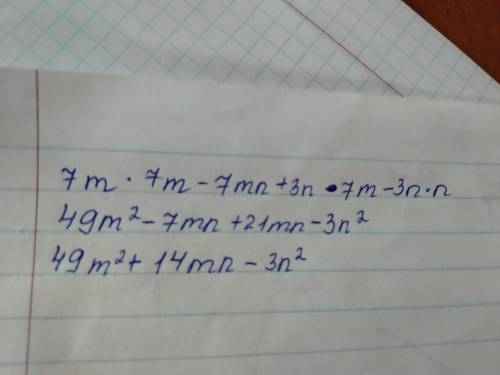 7m · 7m - 7mn + 3n · 7m - 3n · n
49m² - 7mn + 21mn - 3n²
49m² + 14mn - 3n²